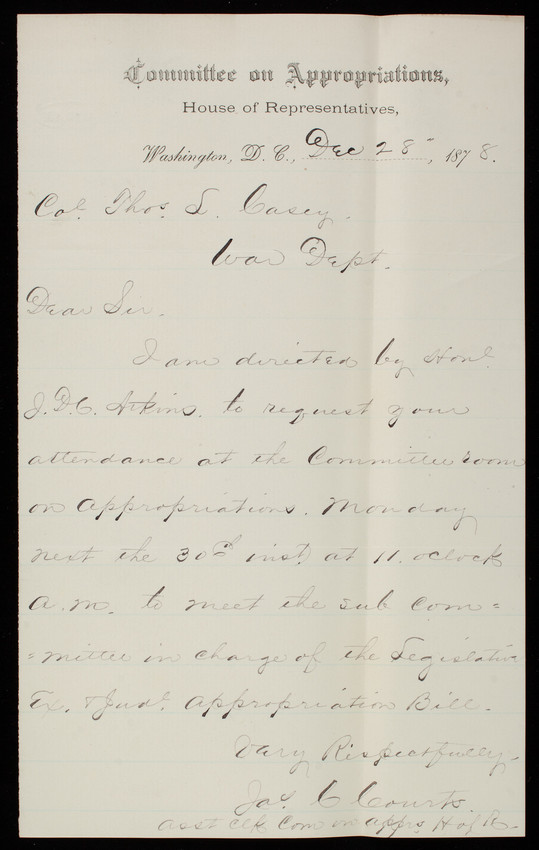 Committee on Appropriations,
House of Representatives,
Washington, D. C., Dec 28", 1878.
Col. Thos. L. Casey.
War Dept.
Dear Sir.
I am directed by Honl.
J.D.C. Atkins. to request your
attendance at the Committee room
on Appropriations. Monday
next the 30th inst) at 11. oclock
a.m. to meet the sub com=
=mittee in charge of the Legislative
Ex. & Judl. Appropriation Bill.
Very Respectfully
Jas. C Courts.
asst Clk Com on apprs. H of R-